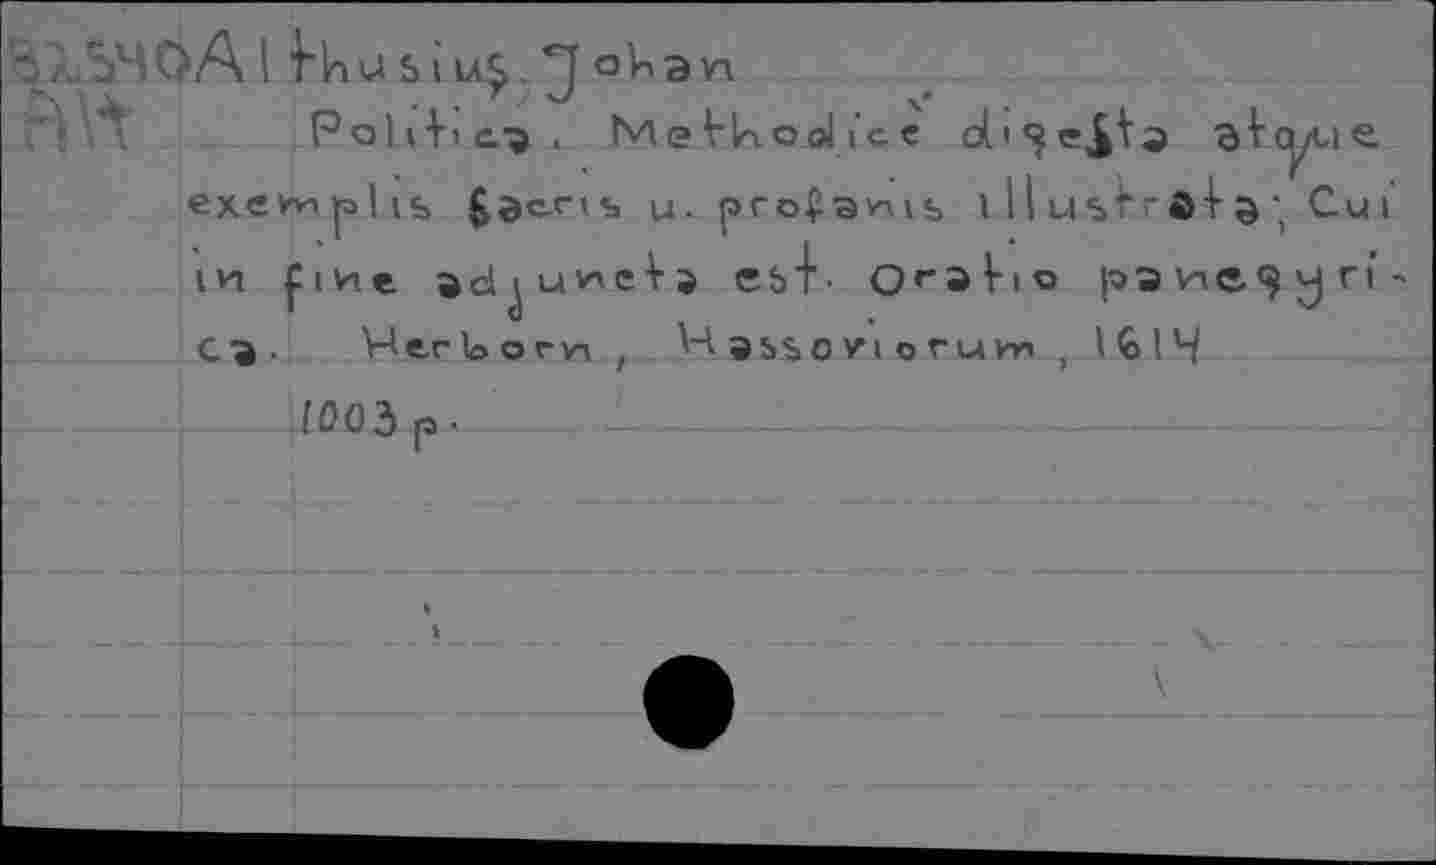 32.540 Althusius, Johan
Alt Politica. Methodice digesta atque
exemplis sacris u. profanis illustrata; Cui
in fine adjuncta est. Oratio panegyri-
ca. Herborn, Hassoviorum, 1614
1003 p.